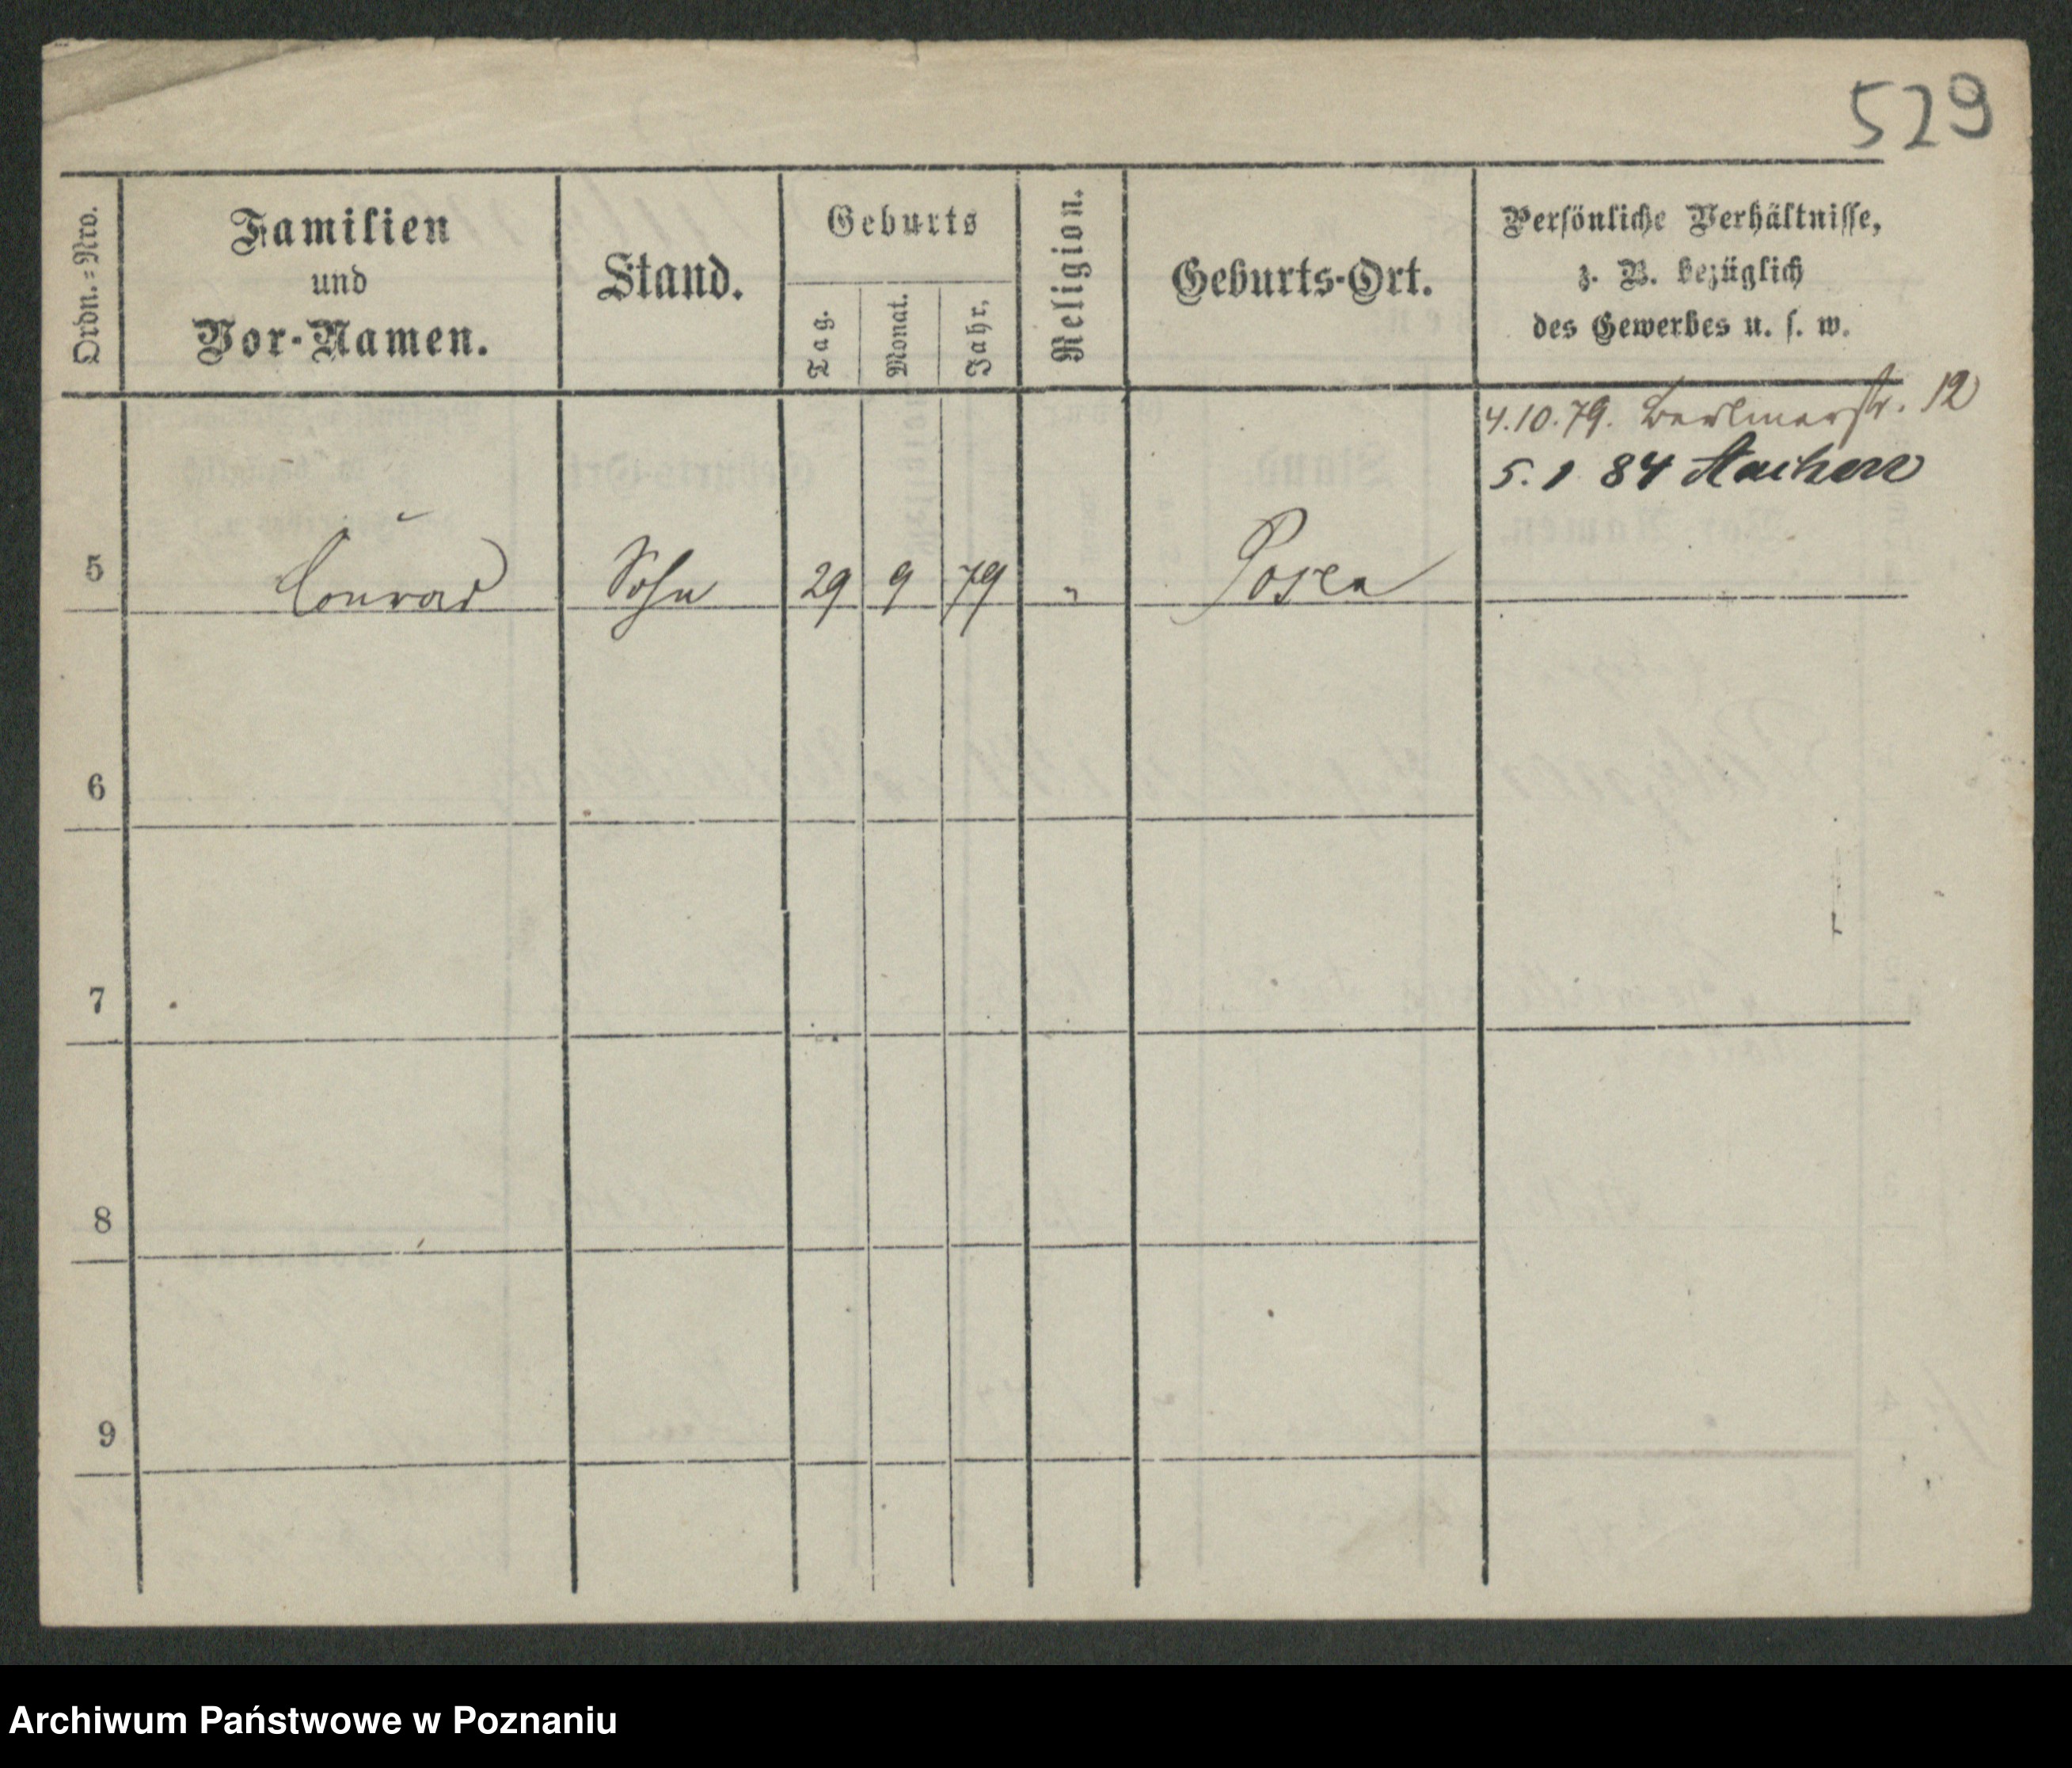 529
Ordn.=Nro.
Familien
und
Vor-Namen.
Stand.
Geburts
Tag.
Monat.
Jahr.
Religion.
Geburts-Ort.
Persönliche Verhältnisse,
z. B. bezüglich
des Gewerbes u. s. w.
4.10.79. Berlinerstr. 12
5.1 84 Aachen
5 Conrad Sohn 29 9 79 " Posen
6
7
8
9
Archiwum Państwowe w Poznaniu